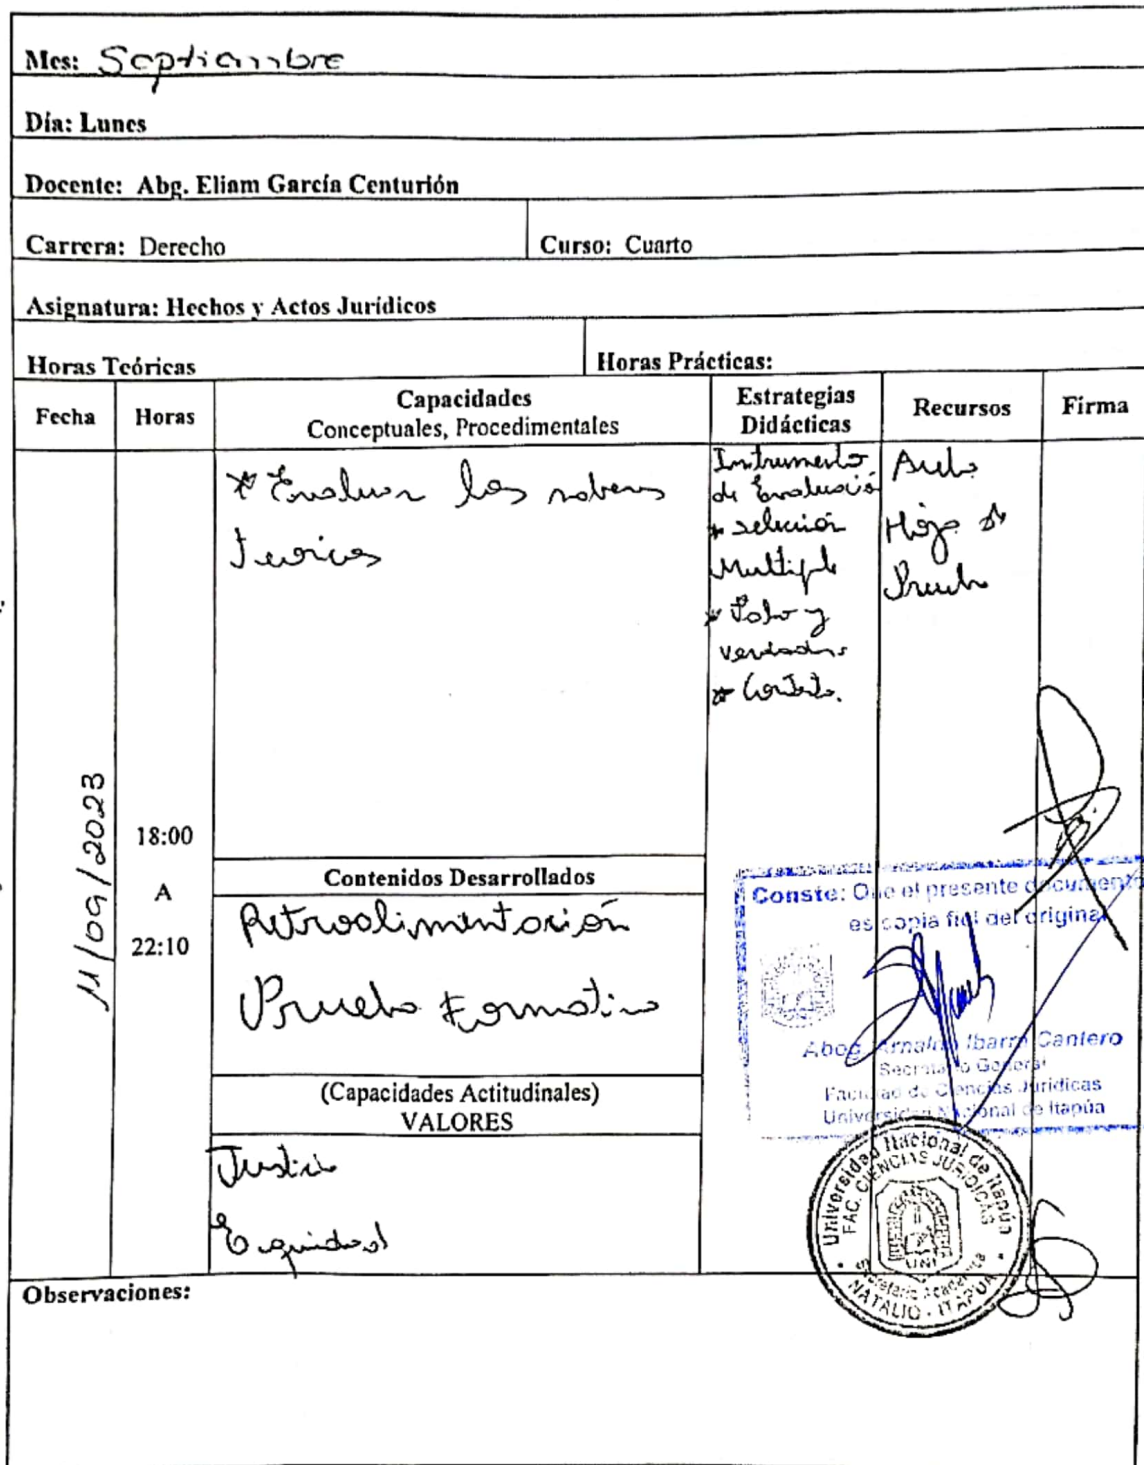 Mes: Septiembre
Día: Lunes
Docente: Abg. Eliam García Centurión
Carrera: Derecho
Curso: Cuarto
Asignatura: Hechos y Actos Jurídicos
Horas Teóricas
Horas Prácticas:
Fecha
Horas
Capacidades
Conceptuales, Procedimentales
Estrategias
Didácticas
Recursos
Firma
11/09/2023
18:00
A
22:10
* Evaluar los saberes
teoricos
Instrumento
de Evaluació
* selección
Multiple
* Falso y
verdadero
Aula
Hoja de
Prueba
Contenidos Desarrollados
Retroalimentación
Prueba Formativa
(Capacidades Actitudinales)
VALORES
Justicia
Equidad
Conste: Que el presente documento
es copia fiel del original
Abog. Arnaldo Ibarra Cantero
Secretario General
Facultad de Ciencias Jurídicas
Universidad Nacional de Itapúa
Universidad Nacional de Itapúa
FAC. CIENCIAS JURIDICAS
UNI
Secretaría Académica
NATALIO - ITAPUA
Observaciones: